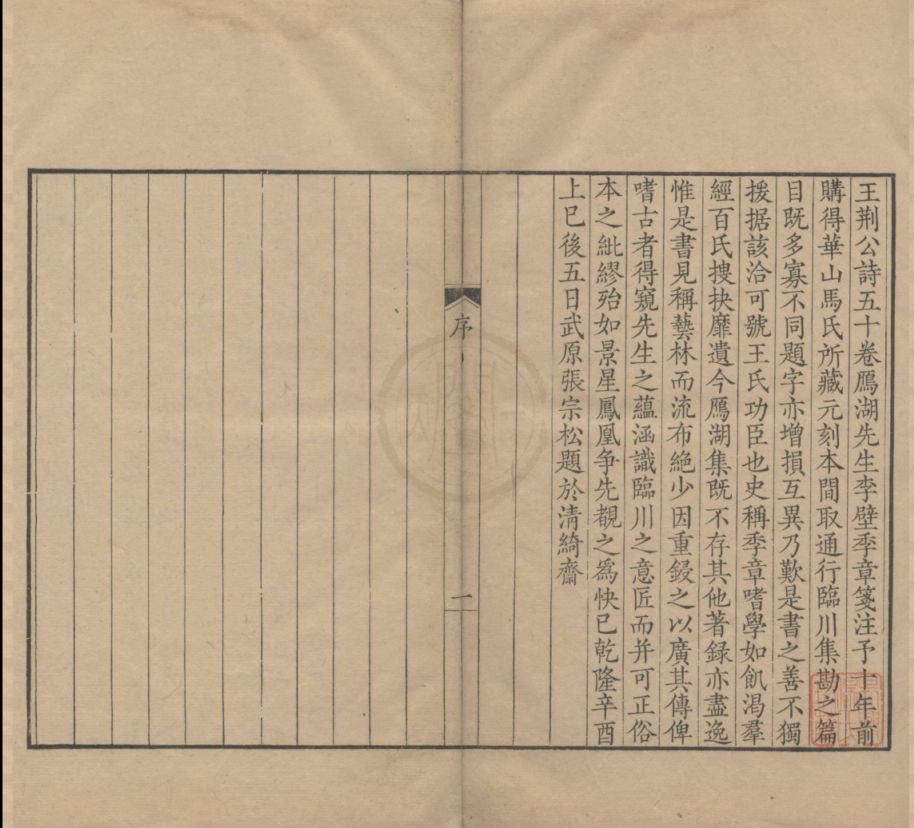 王荆公詩五十卷鴈湖先生李壁季章箋注予十年前
購得華山馬氏所藏元刻本間取通行臨川集勘之篇
目既多寡不同題字亦增損互異乃歎是書之善不獨
援据該洽可號王氏功臣也史稱季章嗜學如飢渴羣
經百氏搜抉靡遺今鴈湖集既不存其他著録亦盡逸
惟是書見稱藝林而流布絶少因重鋟之以廣其傳俾
嗜古者得窺先生之藴涵識臨川之意匠而并可正俗
本之紕繆殆如景星鳳凰争先覩之爲快已乾隆辛酉
上巳後五日武原張宗松題於清綺齋
序
一